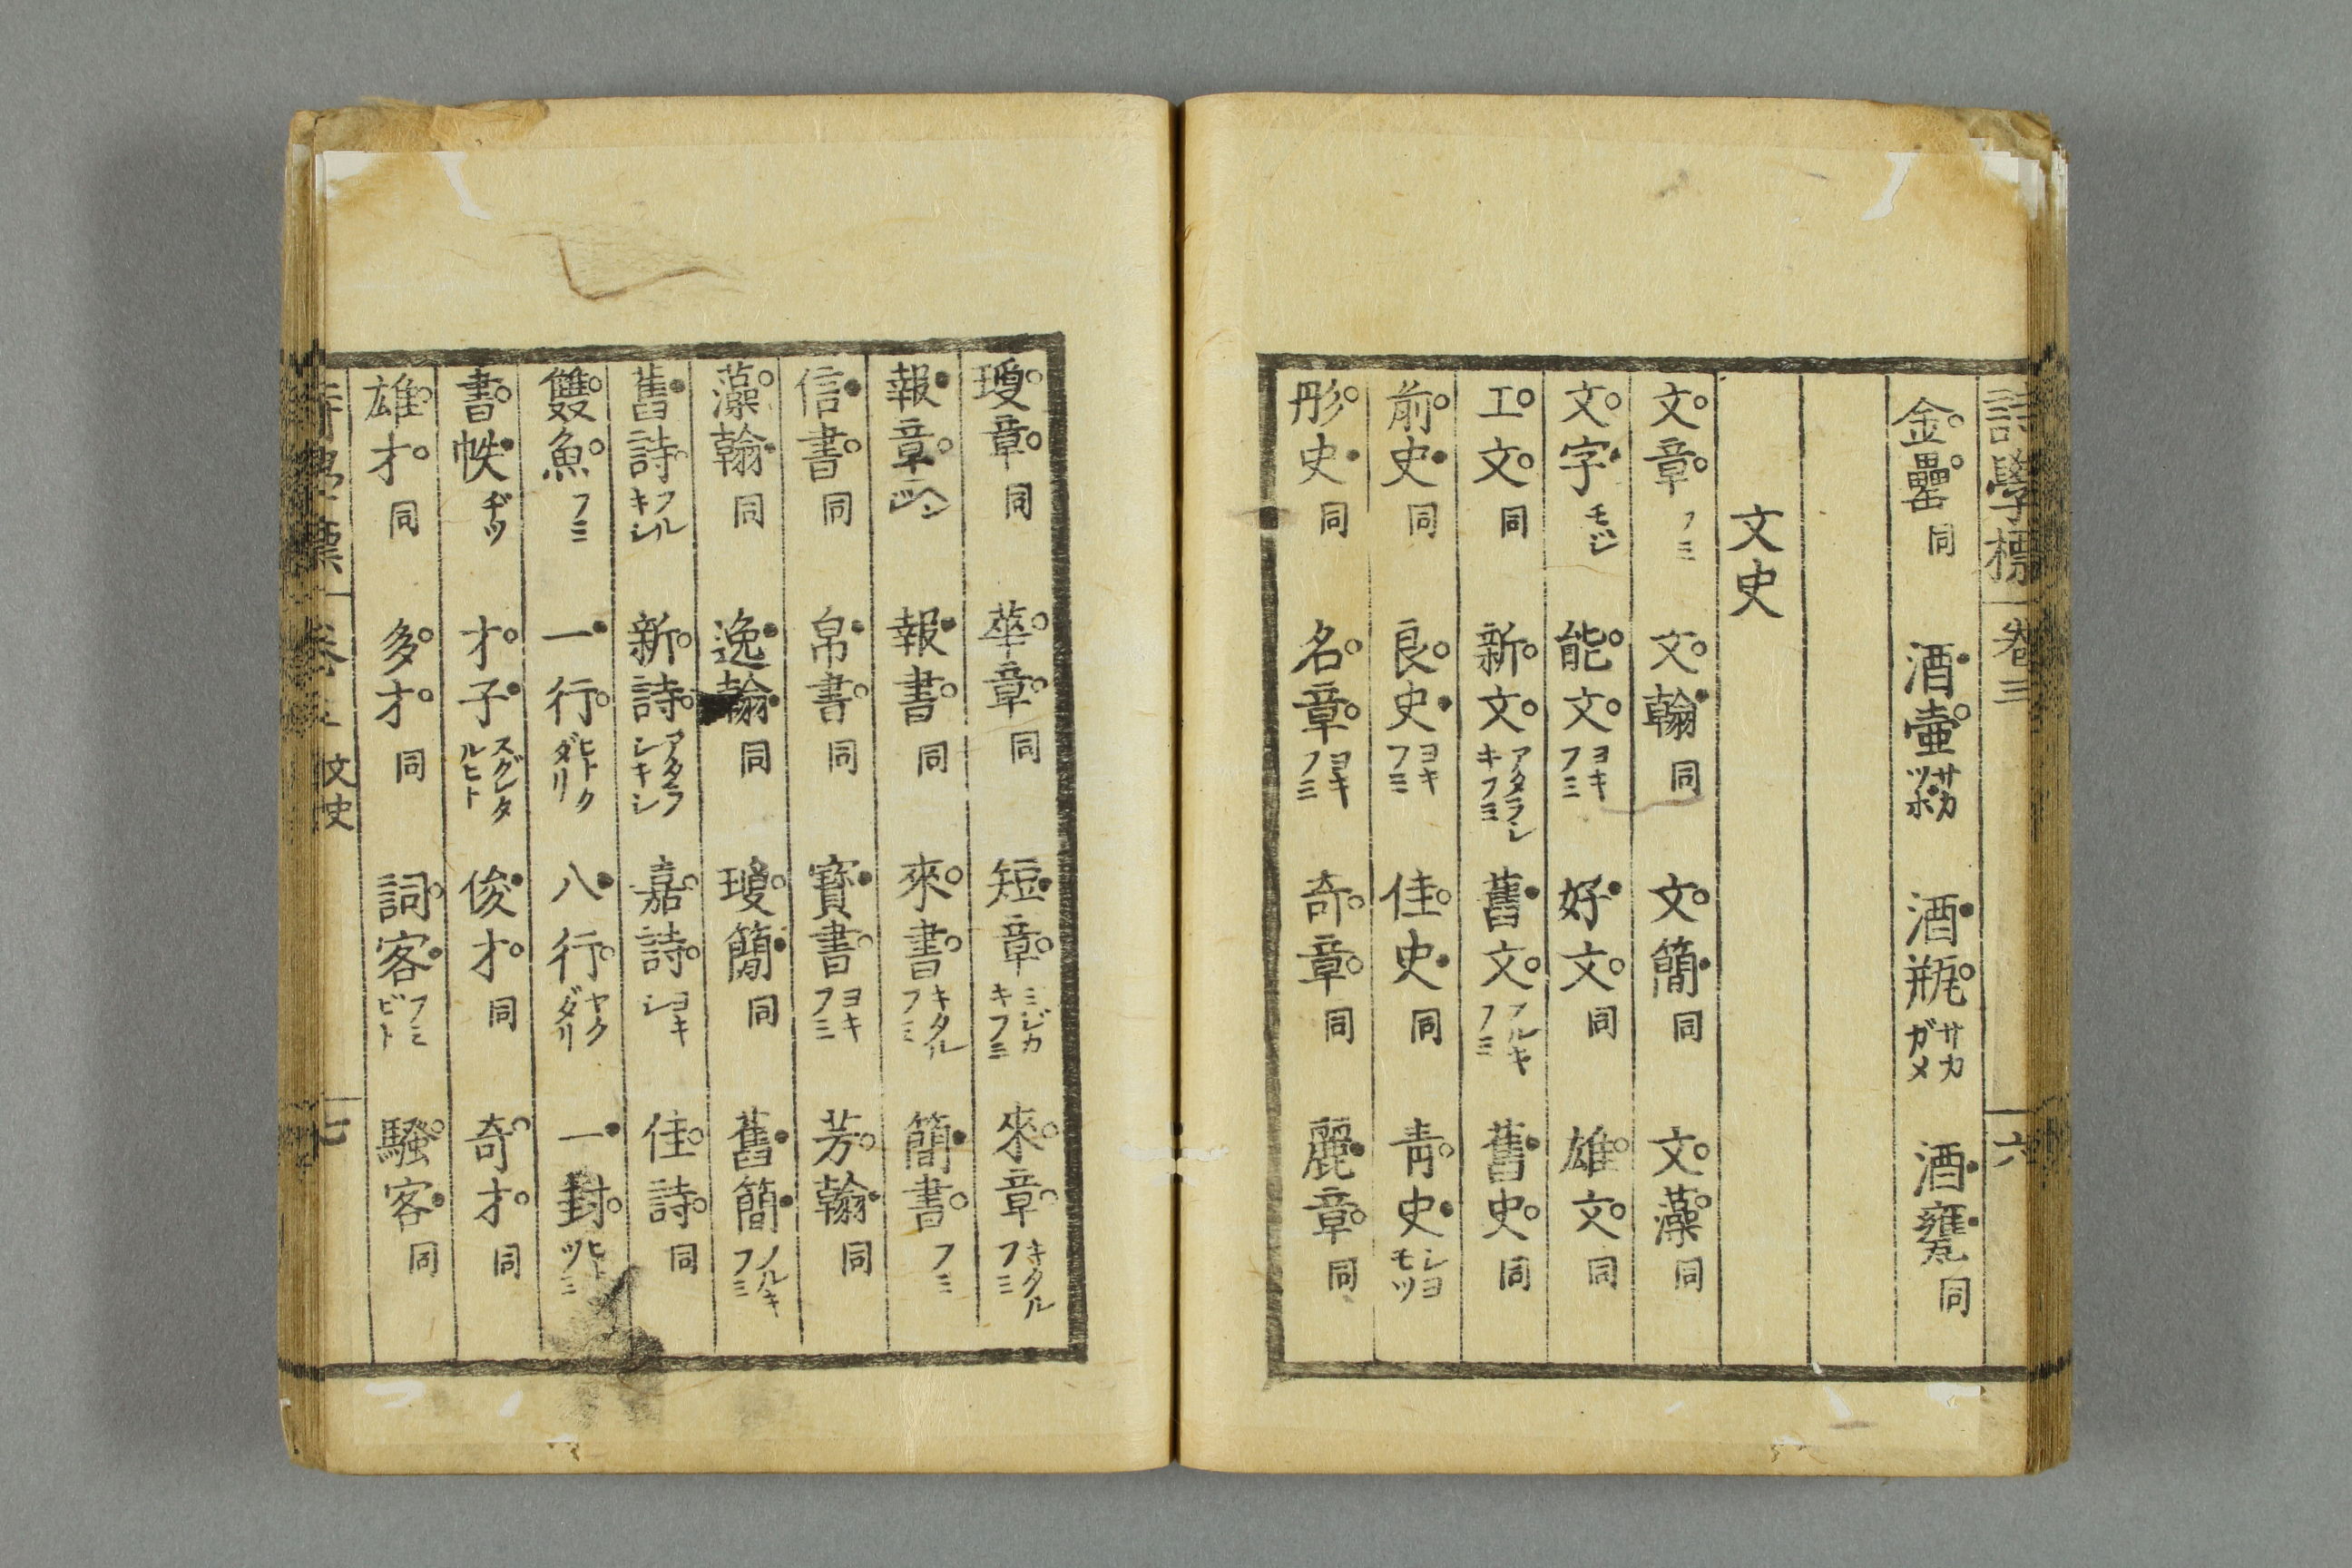 詩學標 卷三 六
金罍 同 酒壷 サカツボ 酒瓶 サカガメ 酒甕 同
文史
文章 フミ 文翰 同 文簡 同 文藻 同
文字 モジ 能文 ヨキフミ 好文 同 雄文 同
工文 同 新文 アタラシキフミ 舊文 フルキフミ 舊史 同
前史 同 良史 ヨキフミ 佳史 同 青史 シヨモツ
彤史 同 名章 ヨキフミ 奇章 同 麗章 同
瓊章 同 華章 同 短章 ミジカキフミ 來章 キタルフミ
報章 ヘンジ 報書 同 來書 キタルフミ 簡書 フミ
信書 同 帛書 同 寳書 ヨキフミ 芳翰 同
藻翰 同 逸翰 同 瓊簡 同 舊簡 フルキフミ
舊詩 フルキシ 新詩 アタラシキシ 嘉詩 ヨキシ 佳詩 同
雙魚 フミ 一行 ヒトクダリ 八行 ヤクダリ 一封 ヒトツミ
書帙 ヂツ 才子 スグレタルヒト 俊才 同 奇才 同
雄才 同 多才 同 詞客 フミビト 騷客 同
詩學標 卷三 文史 七